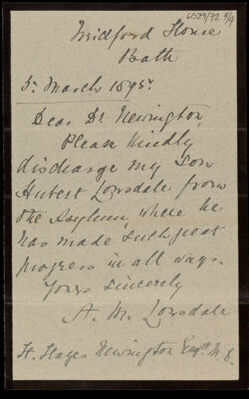 6329/92 8/9
Midford House
Bath
3. March 1895.
Dear Dr Newington,
Please kindly
discharge my Son
Hubert Lonsdale from
the Asylum, where he
has made such great
progress in all ways.
Yours Sincerely
A. M. Lonsdale
H. Hayes Newington Esqre M.D.